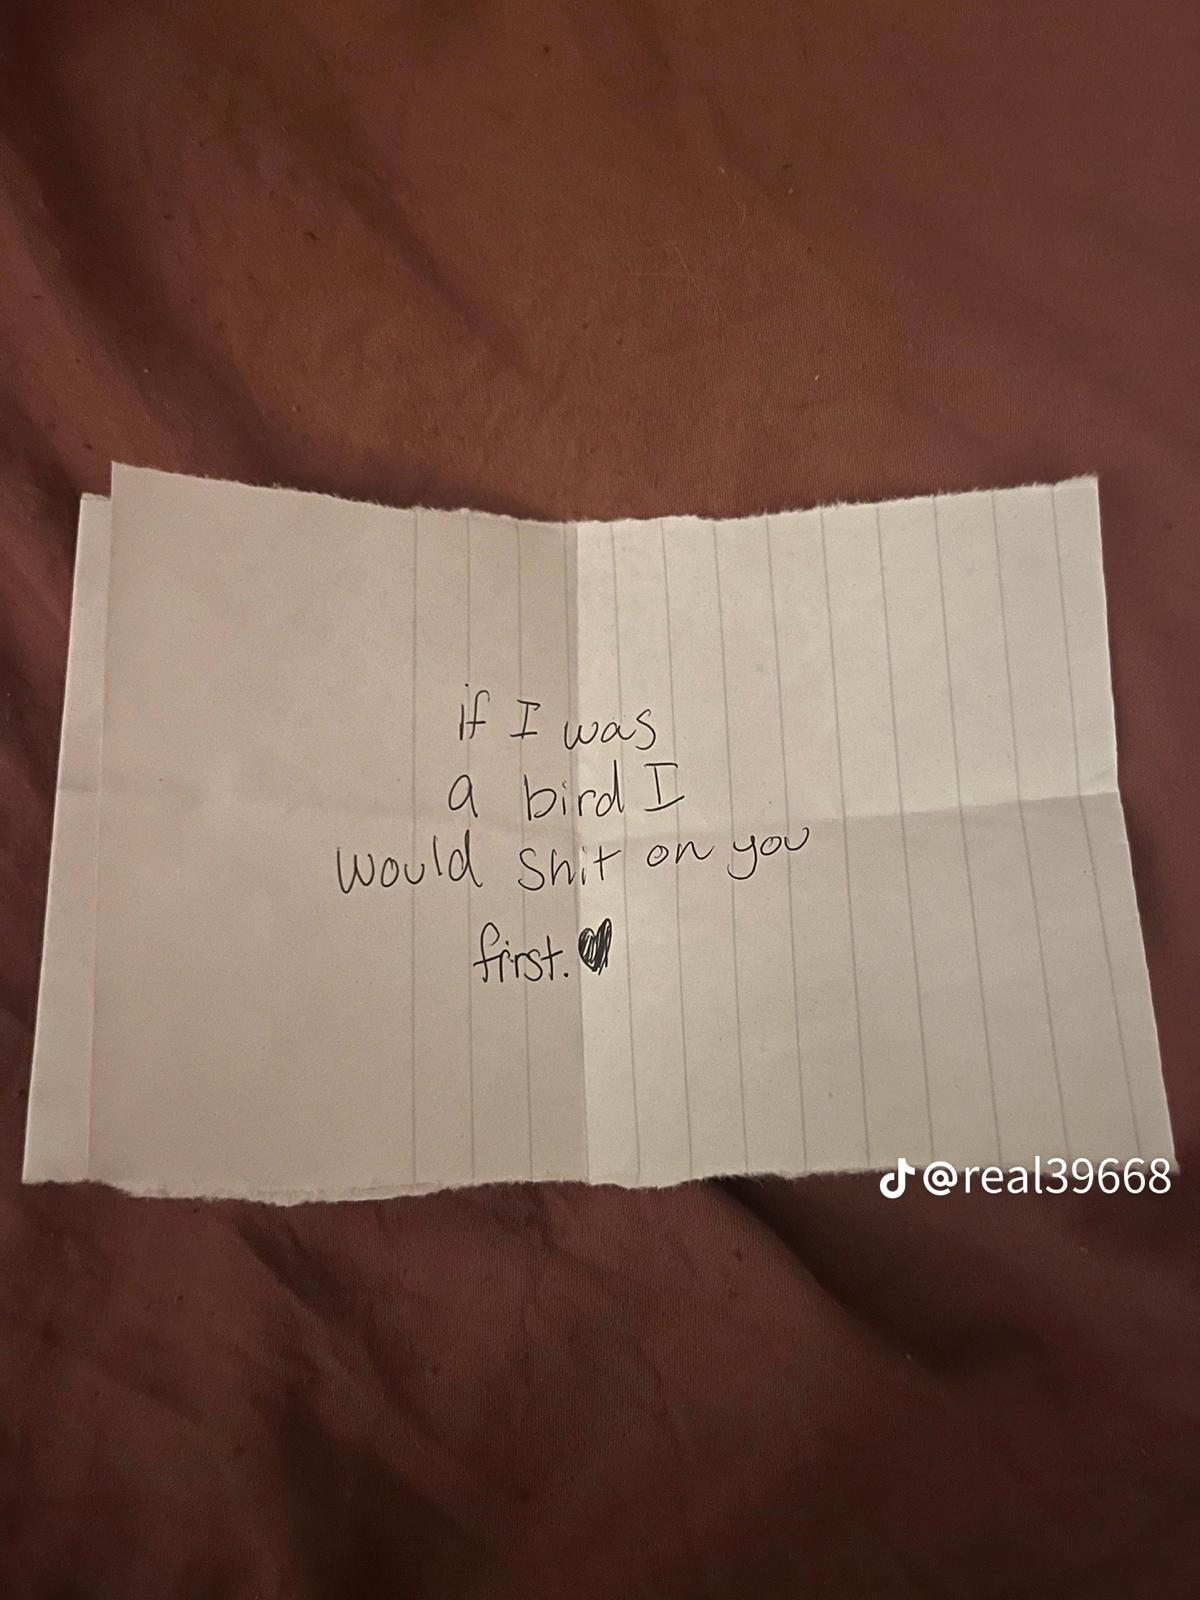 if I was
a bird I
would shit on you
first. ♥
@real39668